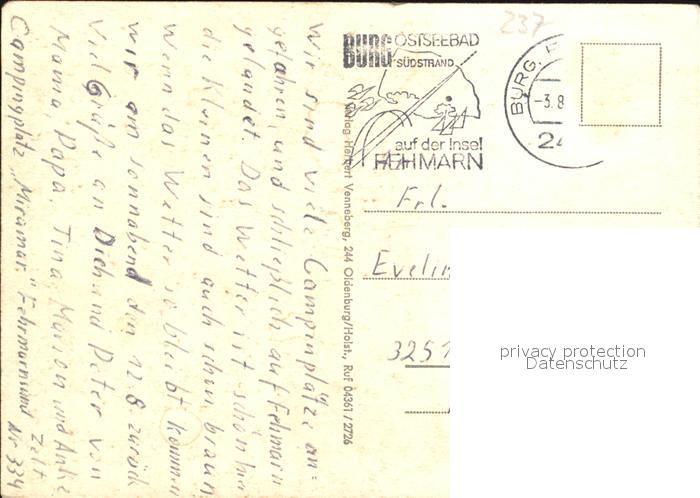 Wir sind viele Campinplätze an-
gefahren, und schließlich auf Fehmarn
gelandet. Das Wetter ist schön
die Kleinen sind auch schon braun
Wenn das Wetter so bleibt kommen
wir am Sonnabend den 12.8. zurück
Viel Grüße an Dich und Peter von
Mama, Papa, Tina, Marion und Anke
Campingplatz „Miramar" Fehmarnsund Zelt
Nr. 334
Verlag Herbert Venneberg, 244 Oldenburg/Holst., Ruf 04361/2726
237
BURG OSTSEEBAD
SÜDSTRAND
auf der Insel
FEHMARN
BURG
-3.8
24
Frl.
Evelin
3251
privacy protection
Datenschutz